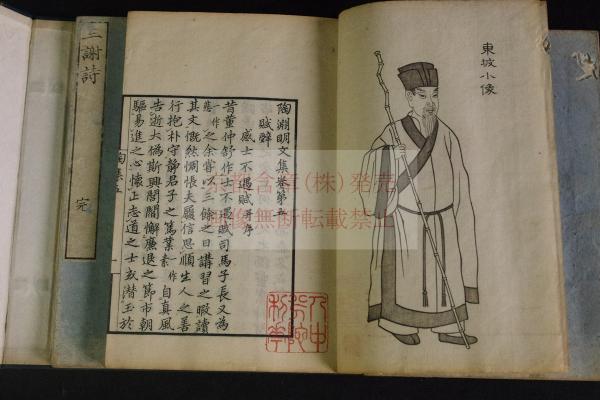 東坡小像
陶淵明文集卷第五
賦辭
感士不遇賦并序
昔董仲舒作士不遇賦司馬子長又為
一作
之余嘗以三餘之日講習之暇讀
其文慨然惆悵夫履信思順生人之善
行抱朴守靜君子之篤業素一作自真風
告逝大偽斯興閭閻懈廉退之節市朝
驅易進之心懷正志道之士或潛玉於
陶集五
一
三謝詩
完
(株)発売
画像無断転載禁止